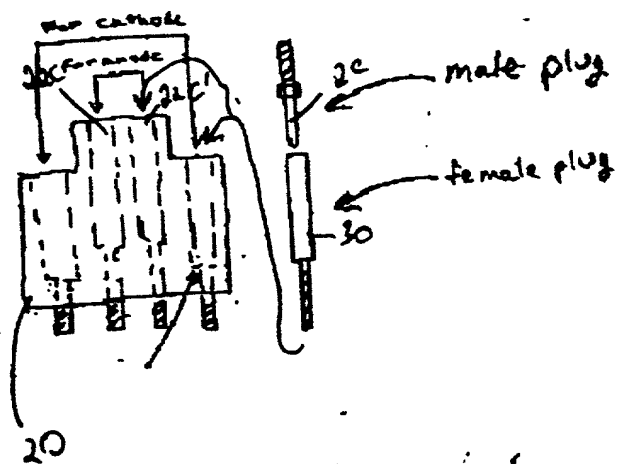 For cathode
For anode
22c
22c'
2c
male plug
female plug
30
20